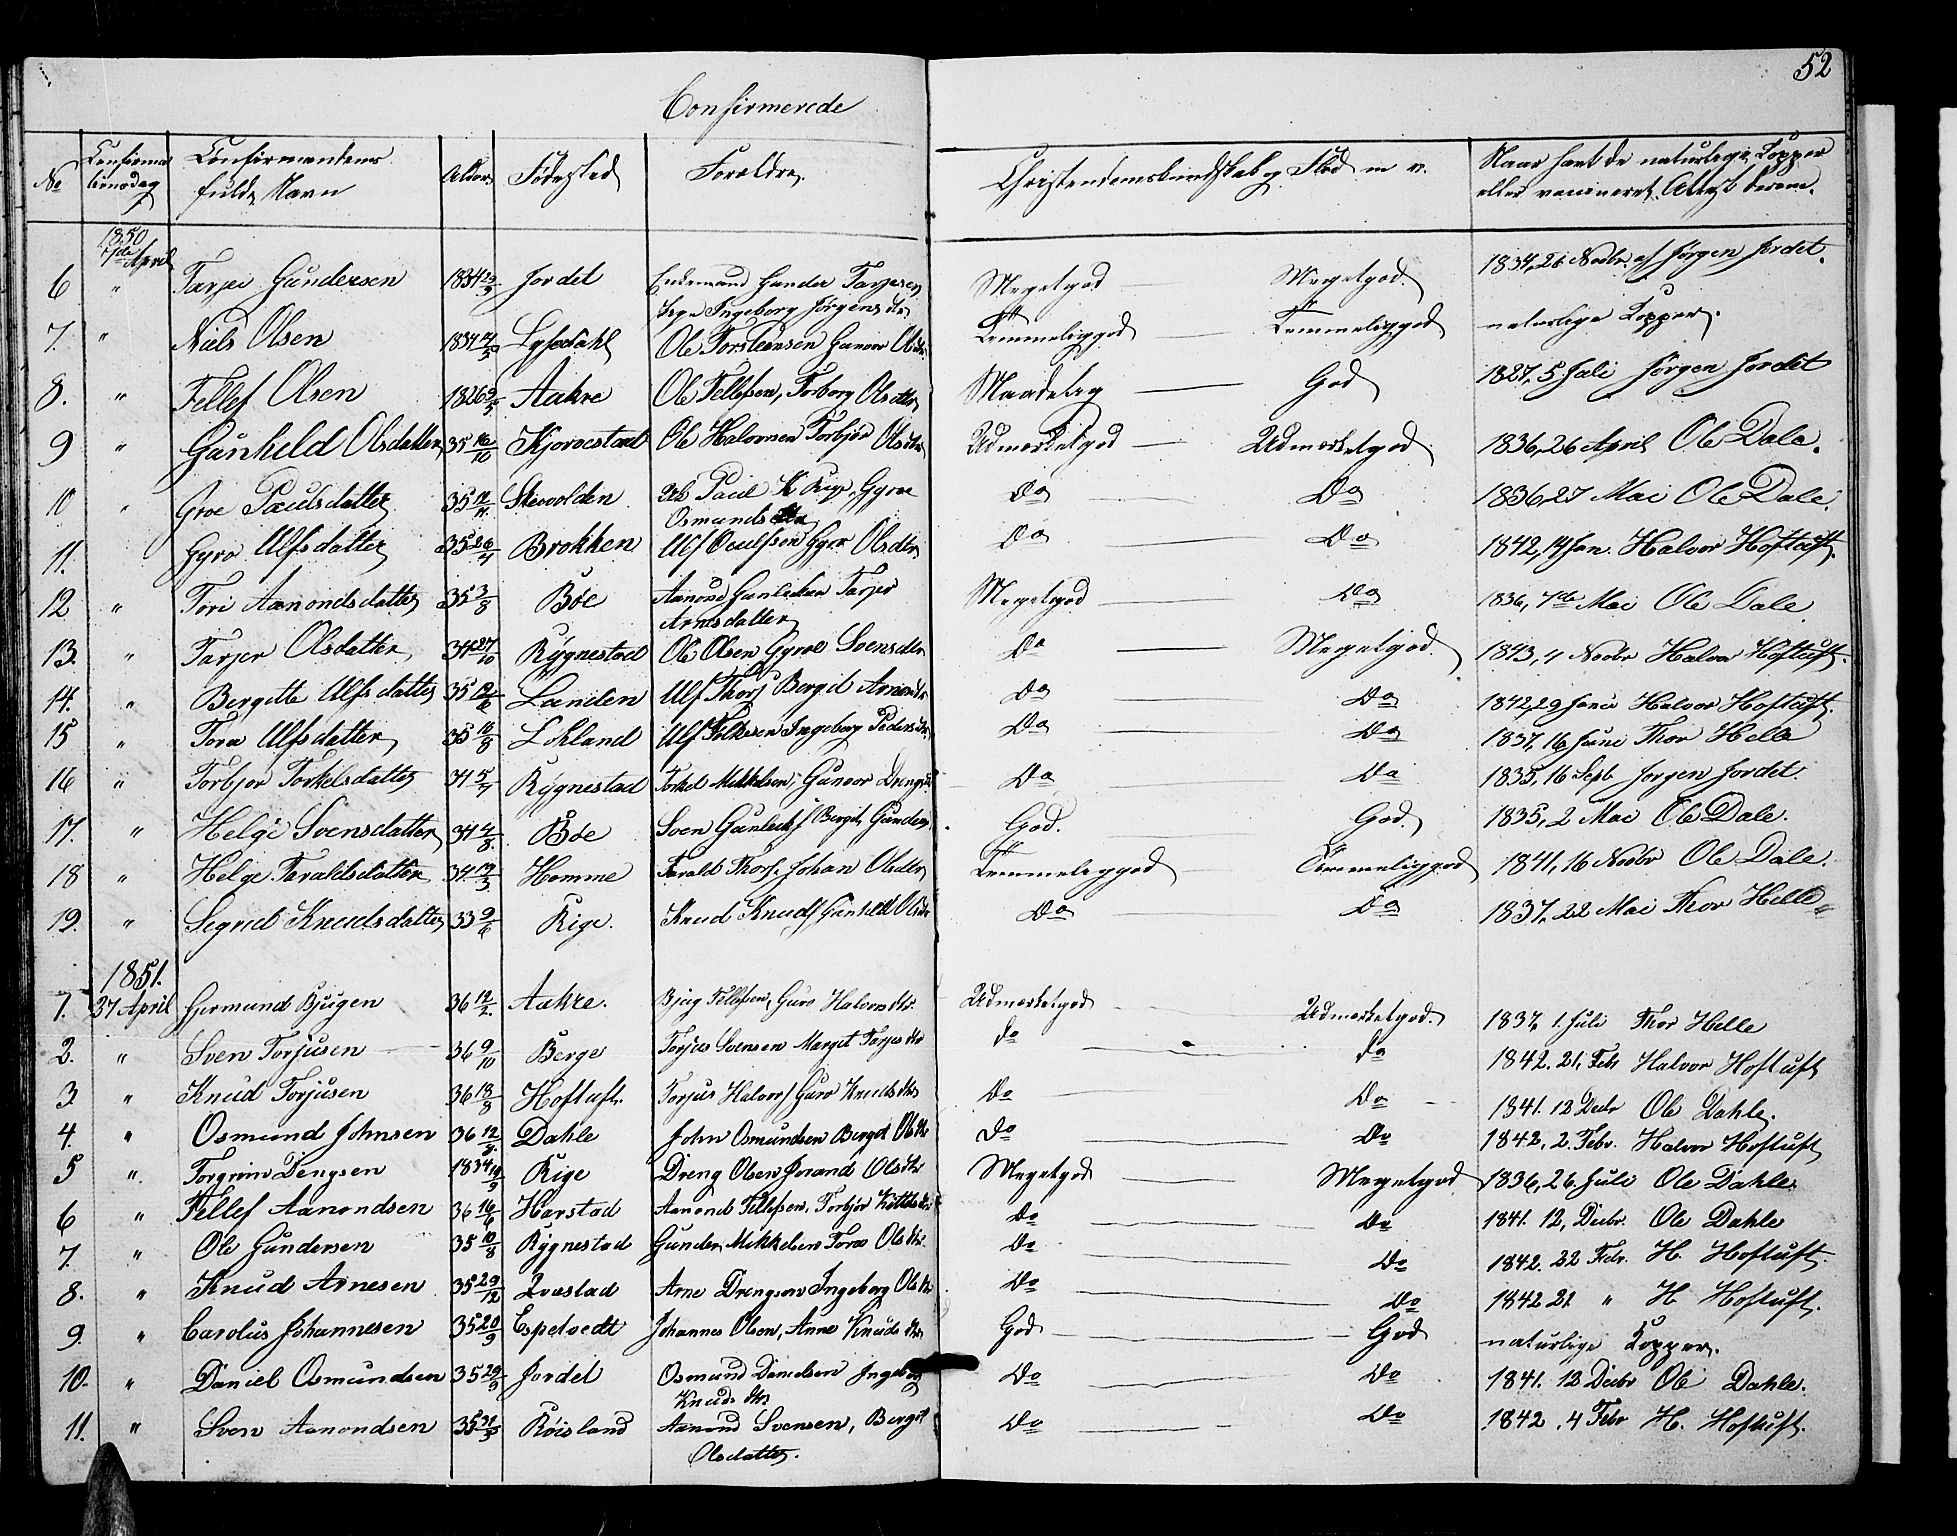 52
Confirmerede
No Confirmationsdag Confirmandens fulde Navn Alder Fødested Forældre Christendomskundskab og Flid m v. Naar havt de naturlige Kopper eller vaccineret. Attest derom.
1850
7de April
6 " Tarjei Gundersen 1834 Jordet Gunder Tarjesen Ingeborg Jørgensdtr Megetgod Megetgod. 1834, 26 Novbr. af Jørgen Jordet.
7. " Niels Olsen 1834 Lysedahl Ole Torsteensen Gunvor Olsdtr Temmeliggod Temmeliggod naturlige Kopper.
8. " Tellef Olsen 1826 Aakre Ole Tellefsen, Torborg Olsdtter Maadelig God 1827, 5 Juli Jørgen Jordet
9 " Gunhild Olsdatter 35 16/10 Kjørvestad Ole Halvorsen Torbjør Olsdtr Udmerketgod Udmerketgod 1836, 26 April Ole Dale.
10 " Groe Paulsdatter 35 Skievolden Paul K Rige, Gyroe Osmundsdtr Do Do 1836, 27 Mai Ole Dale.
11. Gyro Ulfsdatter 35 26/4 Brokken Ulf Gyro Olsdtr Do Do 1842, 14 Jan. Halvor Hoftuft.
12 " Tori Aanondsdatter 35 3/8 Bøe Aanond Gunleiksen Tarjer Arnesdatter Megetgod Do 1836, 7de Mai Ole Dale
13. " Tarjer Olsdatter 34 27/10 Rygnestad Ole Olsen Gyroe Svensdtr Do Megetgod. 1843, 4 Novbr Halvor Hoftuft.
14. " Bergitte Ulfsdatter 35 12/6 Landen Ulf Thors Bergit Do Do 1842, 29 Halvor Hoftuft.
15 " Tora Ulfsdatter 35 11/8 Ulf Folkesen Ingeborg Pedersdtr Do Do 1837, 16 Juni Thor Helle
16 " Torbjør Torkelsdatter 34 5/7 Rygnestad Torkel Mikkelsen, Gunvor Do Do 1835, 16 Sept Jørgen Jordet.
17. " Helge Svensdatter 34 4/8 Bøe Sven Gunleiks Bergit God. God. 1835, 2 Mai Ole Dale.
18 " Helge Taraldsdatter 34 19/3 Homme Tarald Thors. Johan Olsdtr Temmeliggod Temmeliggod 1841, 16 Novbr Ole Dale.
19. " Segrid Knudsdatter 33 9/6 Rige. Knud Knuds Gunhild Olsdtr Do Do 1837, 22 Mai Thor Helle
1851.
1. 27 April Gjermund Bjugen 36 12/2. Aakre. Bjug Tellefsen, Guro Halvorsdtr. Udmerketgod Udmerketgod. 1837, 1. Juli Thor Helle
2. " Sven Torjusen 36 9/10 Berge Torjus Svensen Margit Tarjesdtr do do 1842. 21. Febr Halvor Hoftuft
3 " Knud Torjusen 36 13/8 Hoftuft. Torjus Halvors Guro Knudsdtr Do Do 1841. 12 Decbr Ole Dahle.
4. " Osmund Johnsen 36 12/8. Dahle John Osmundsen Bergit Olsdtr Do Do 1842, 2. Febr. Halvor Hoftuft
5 " Torgrim Dengsen 1834 Rige Dreng Olsen Jorand Olsdtr Megetgod Megetgod 1836, 26. Juli Ole Dahle
6 " Tellef Aanondsen 36 16/6 Harstad Aanond Tellefsen, Torbjør Do Do 1841. 12, Decbr. Ole Dahle
7. " Ole Gundersen 35 10/8 Rygnestad Gunder Mikkelsen Torro Olsdtr Do Do 1842. 22 Febr. H. Hoftuft.
8. " Knud Arnesen 35 29/12 Qvæstad Arne Drengson Ingeborg Olsdtr Do Do 1842 21 " H. Hoftuft.
9. " Carolus Johannesen 35 20/9 Espetvedt Johannes Olsen, Anne Knudsdtr God God naturlige Kopper.
10. " Daniel Osmundsen 35 29/9 Jordet Osmund Danielsen Ingeborg Knudsdtr Do Do 1841. 12 Decbr Ole Dahle.
11. " Sven Aanondsen 35 Røisland Aanond Svensen, Bergit Olsdatter. Do Do 1842 . 4 Febr H. Hoftuft.